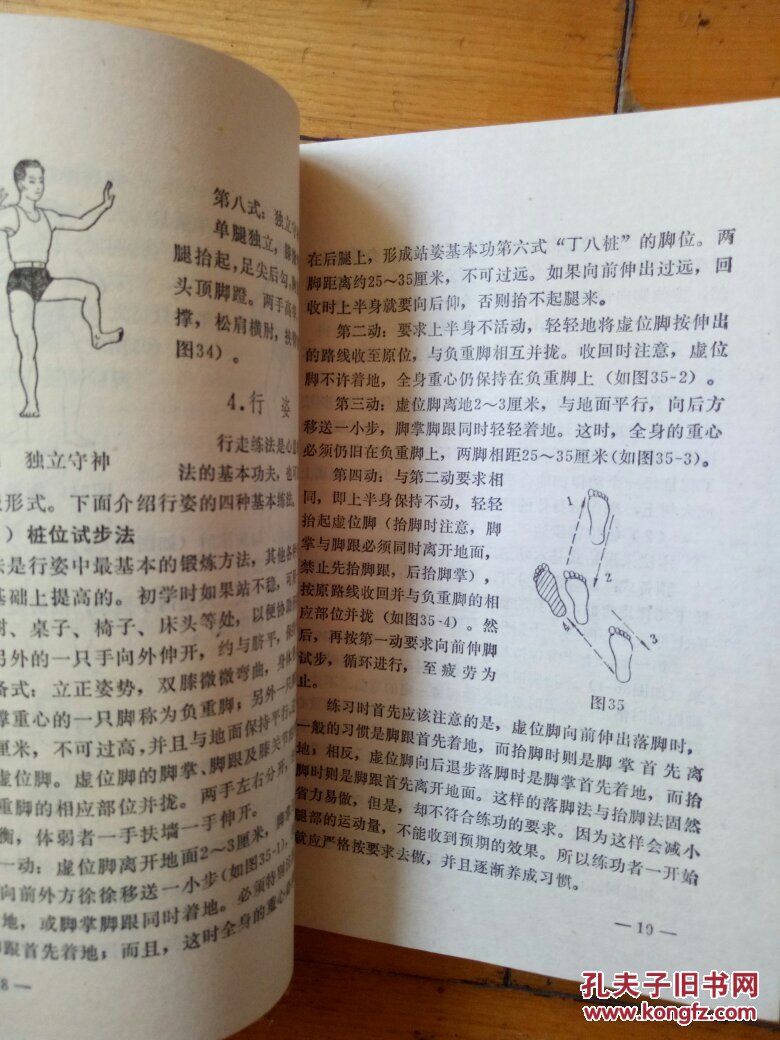 第八式：独立守
单腿独立，脚
腿抬起，足尖后勾，
头顶脚蹬。两手高
撑，松肩横肘，
图34）。
独立守神
4.行 姿
行走练法是心
法的基本功夫，也
形式。下面介绍行姿的四种基本练法。
）桩位试步法
法是行姿中最基本的锻炼方法，其他各
基础上提高的。初学时如果站不稳，可
树、桌子、椅子、床头等处，以便协助
另外的一只手向外伸开，约与脐平，保
备式：立正姿势，双膝微微弯曲，身体
撑重心的一只脚称为负重脚；另外一只
厘米，不可过高，并且与地面保持平行，
虚位脚。虚位脚的脚掌、脚跟及膝关节
重脚的相应部位并拢。两手左右分开，
衡，体弱者一手扶墙一手伸开。
一动：虚位脚离开地面2～3厘米，脚掌
向前外方徐徐移送一小步（如图35-1），
地，或脚掌脚跟同时着地。必须特别注
脚跟首先着地；而且，这时全身的重心
8—
在后腿上，形成站姿基本功第六式“丁八桩”的脚位。两
脚距离约25～35厘米，不可过远。如果向前伸出过远，回
收时上半身就要向后仰，否则抬不起腿来。
第二动：要求上半身不活动，轻轻地将虚位脚按伸出
的路线收至原位，与负重脚相互并拢。收回时注意，虚位
脚不许着地，全身重心仍保持在负重脚上（如图35-2）。
第三动：虚位脚离地2～3厘米，与地面平行，向后方
移送一小步，脚掌脚跟同时轻轻着地。这时，全身的重心
必须仍旧在负重脚上，两脚相距25～35厘米（如图35-3）。
第四动：与第二动要求相
同，即上半身保持不动，轻轻
抬起虚位脚（抬脚时注意，脚
掌与脚跟必须同时离开地面，
禁止先抬脚跟，后抬脚掌），
按原路线收回并与负重脚的相
应部位并拢（如图35-4）。然
后，再按第一动要求向前伸脚
试步，循环进行，至疲劳为
止。
1
2
3
4
图35
练习时首先应该注意的是，虚位脚向前伸出落脚时，
一般的习惯是脚跟首先着地，而抬脚时则是脚掌首先离
地；相反，虚位脚向后退步落脚时是脚掌首先着地，而抬
脚时则是脚跟首先离开地面。这样的落脚法与抬脚法固然
省力易做，但是，却不符合练功的要求。因为这样会减小
腿部的运动量，不能收到预期的效果。所以练功者一开始
就应严格按要求去做，并且逐渐养成习惯。
—19—
孔夫子旧书网
www.kongfz.com